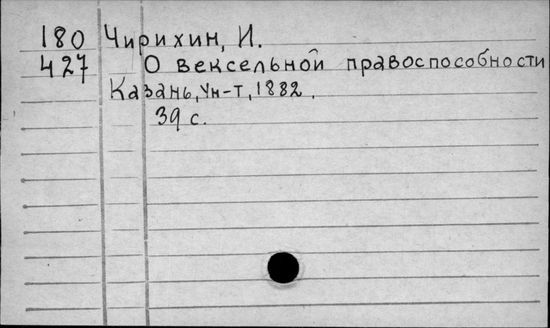 180 Чирихин, И.
427 О вексельной правоспособности
Казань, Ун-т, 1882.
39 с.